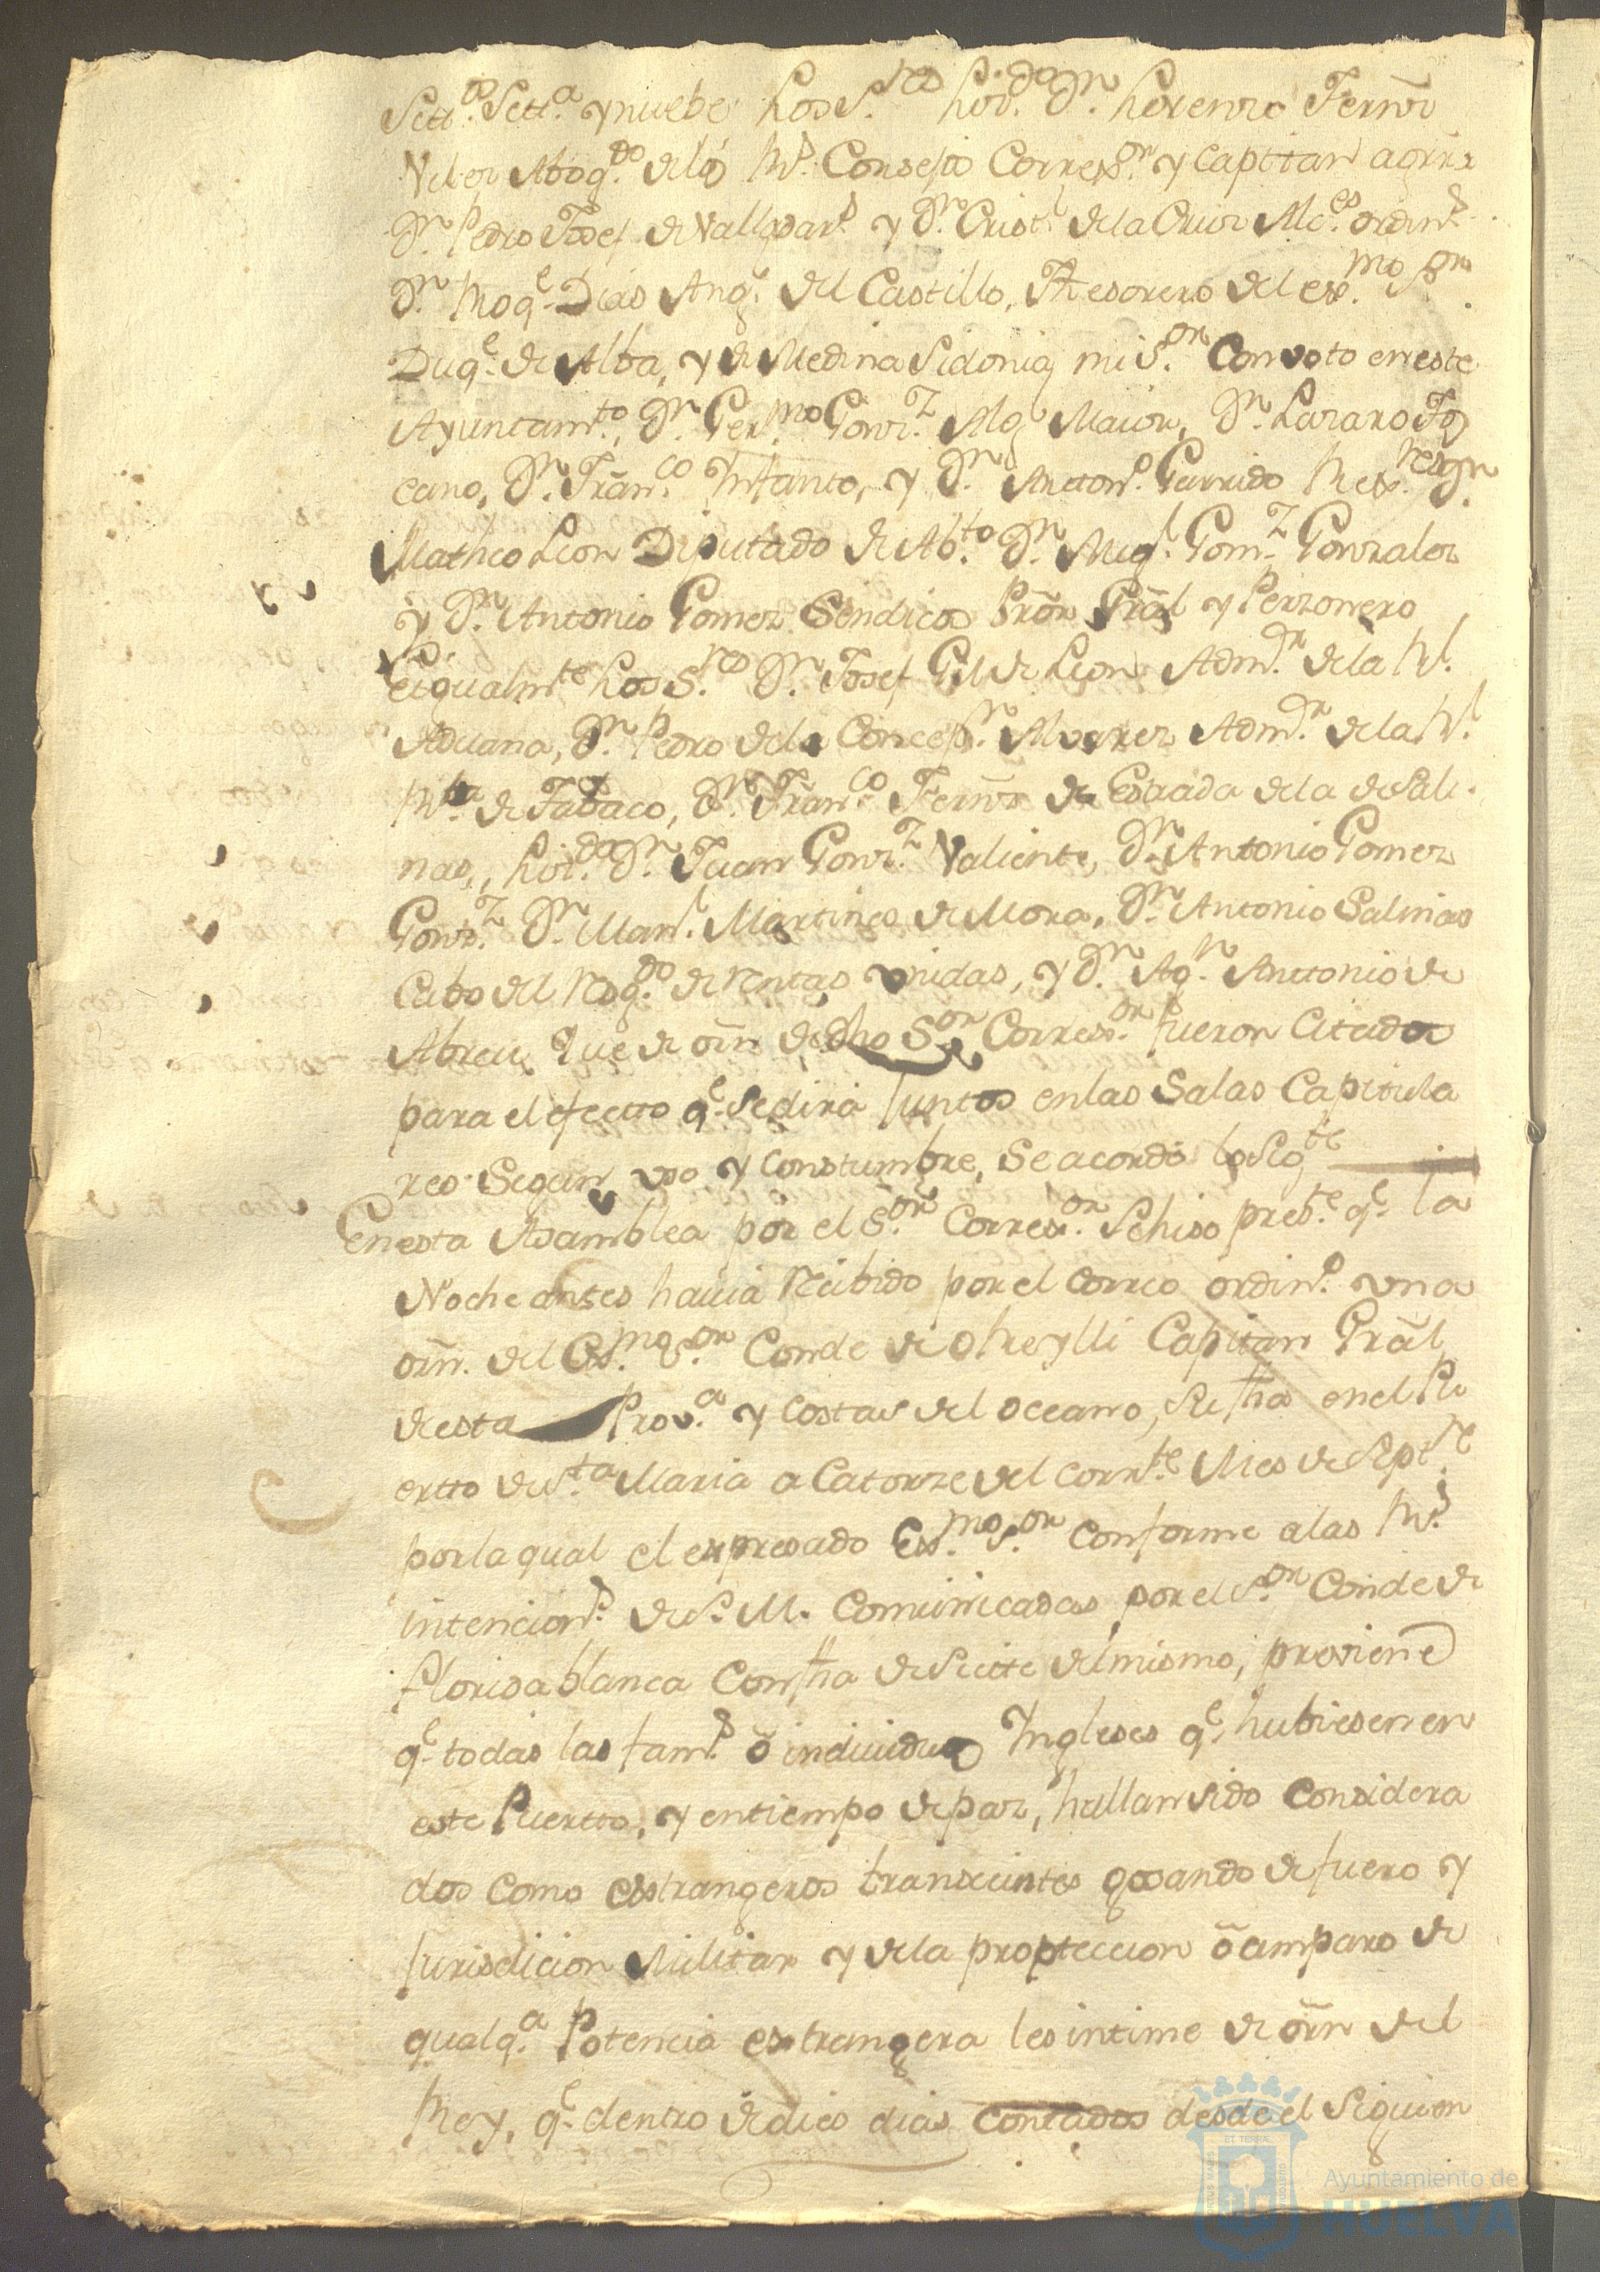 Sett.os Sett.a y nuebe Los S.res Liz.do Dn. Lorenzo Fernz
Velez Abog.do de los Rs. Consejos Correx.or y Capitan a grra
Dn. Pedro Josef de Vallejo y Dn. Crist.l de la Cruz Alc.es ordin.s
Dn. Roq.e Dias Ang.l del Castillo, Thesorero del ex.mo S.or
Duq.e de Alba, y de Medina Sidonia, mi S.or Con voto en este
Ayuntam.to, Dn. Ger.mo Gonz.z Alg.l Maior, Dn. Lazaro To
cano, Dn. Fran.co Infante, y Dn. Antton.o Garrido Rex.res Dn.
Matheo Leon Diputado de Ab.to Dn. Mig.l Gom.z Gonzalez
y Dn. Antonio Gomez Sendicos Prõr Grãl y Perzonero
E igualm.te Los S.res Dn. Josef Gil de Leon Adm.dr de la Rl.
Aduana, Dn. Pedro de la Concep.n Alvarez Adm.dr de la Rl.
Rta. de Tabaco, Dn. Fran.co Fernz de Estrada de la de Sali-
nas,, Liz.do Dn. Juan Gonz.z Valiente, Dn. Antonio Gomez
Gonz.z Dn. Man.l Martines de Mora, Dn. Antonio Salinas
Cabo del Resg.do de Rentas unidas, y Dn. Ag.n Anttonio de
Abreu, que de orñ de dho S.or Correx.or fueron Citados
para el efectto q.e se dirá Juntos en las Salas Capitula
res Segun uso y Constumbre, Se acordó lo Sig.te
En esta Asamblea por el S.or Correx.or Se hiso pres.te q.e la
Noche antes havia recibido por el Correo ordin.o una
orñ. del Ex.mo S.or Conde de Oreylli Capitan Grãl
de esta Prov.a y Costas del oceano, su fha en el Pu
ertto de S.ta Maria a Catorze del corr.te Mes de Sept.re
por la qual el expresado Ex.mo S.or Conforme a las Rs.
intencion.s de S. M. Comunicadas por el S.or Conde de
Floridablanca Con fha de Siette del mismo, previene
q.e todas las fam.s õ individuos Ingleses q.e hubiesen en
este Puertto, y en tiempo de paz, hallan sido Considera
dos como estrangeros transeuntes gosando de fuero y
Jurisdicion Militar y de la proptección õ amparo de
qualq.a Potencia extrangera les intime de orñ del
Rey, q.e dentro de dies dias Contados desde el Siguien
Ayuntamiento de
HUELVA